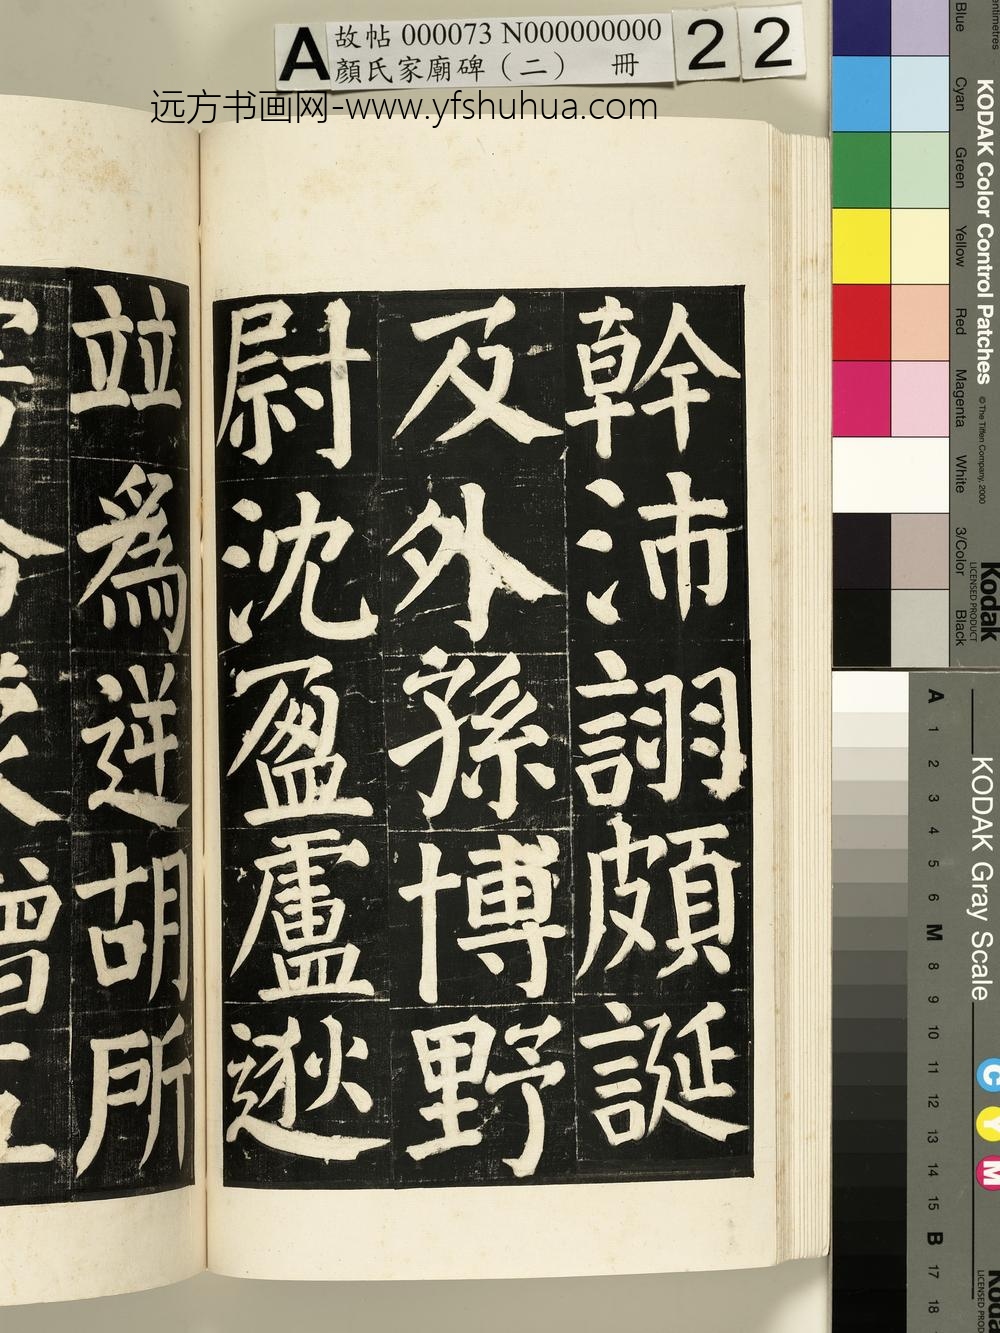 A
故帖 000073 N000000000
顏氏家廟碑（二） 冊
22
远方书画网-www.yfshuhua.com
幹沛詡頗誕
及外孫博野
尉沈盈盧逖
並為逆胡所
KODAK Color Control Patches
© The Tiffen Company, 2000
Kodak
LICENSED PRODUCT
Blue
Cyan
Green
Yellow
Red
Magenta
White
3/Color
Black
KODAK Gray Scale
C
Y
M
A
1
2
3
4
5
6
M
8
9
10
11
12
13
14
15
B
17
18